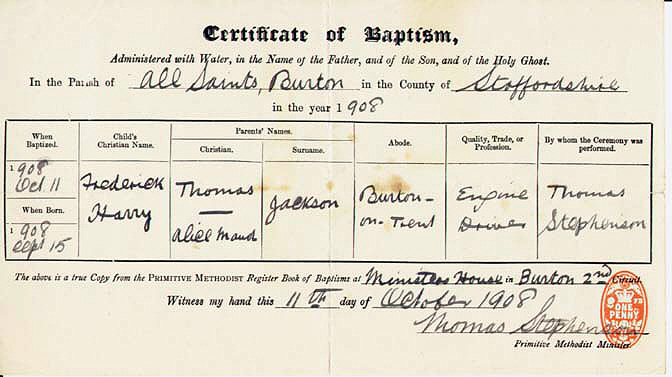 Certificate of Baptism,
Administered with Water, in the Name of the Father, and of the Son, and of the Holy Ghost.
In the Parish of All Saints, Burton in the County of Staffordshire
in the year 1908
When Baptized.
Child's Christian Name.
Parents' Names.
Christian.
Surname.
Abode.
Quality, Trade, or Profession.
By whom the Ceremony was performed.
1908
Oct 11
When Born.
1908
Sept 15
Frederick
Harry
Thomas
—
Alice Maud
Jackson
Burton-
on-Trent
Engine
Driver
Thomas
Stephenson
The above is a true Copy from the PRIMITIVE METHODIST Register Book of Baptisms at Ministers House in Burton 2nd Circuit.
Witness my hand this 11th day of October 1908
Thomas Stephenson
Primitive Methodist Minister.
ONE
PENNY